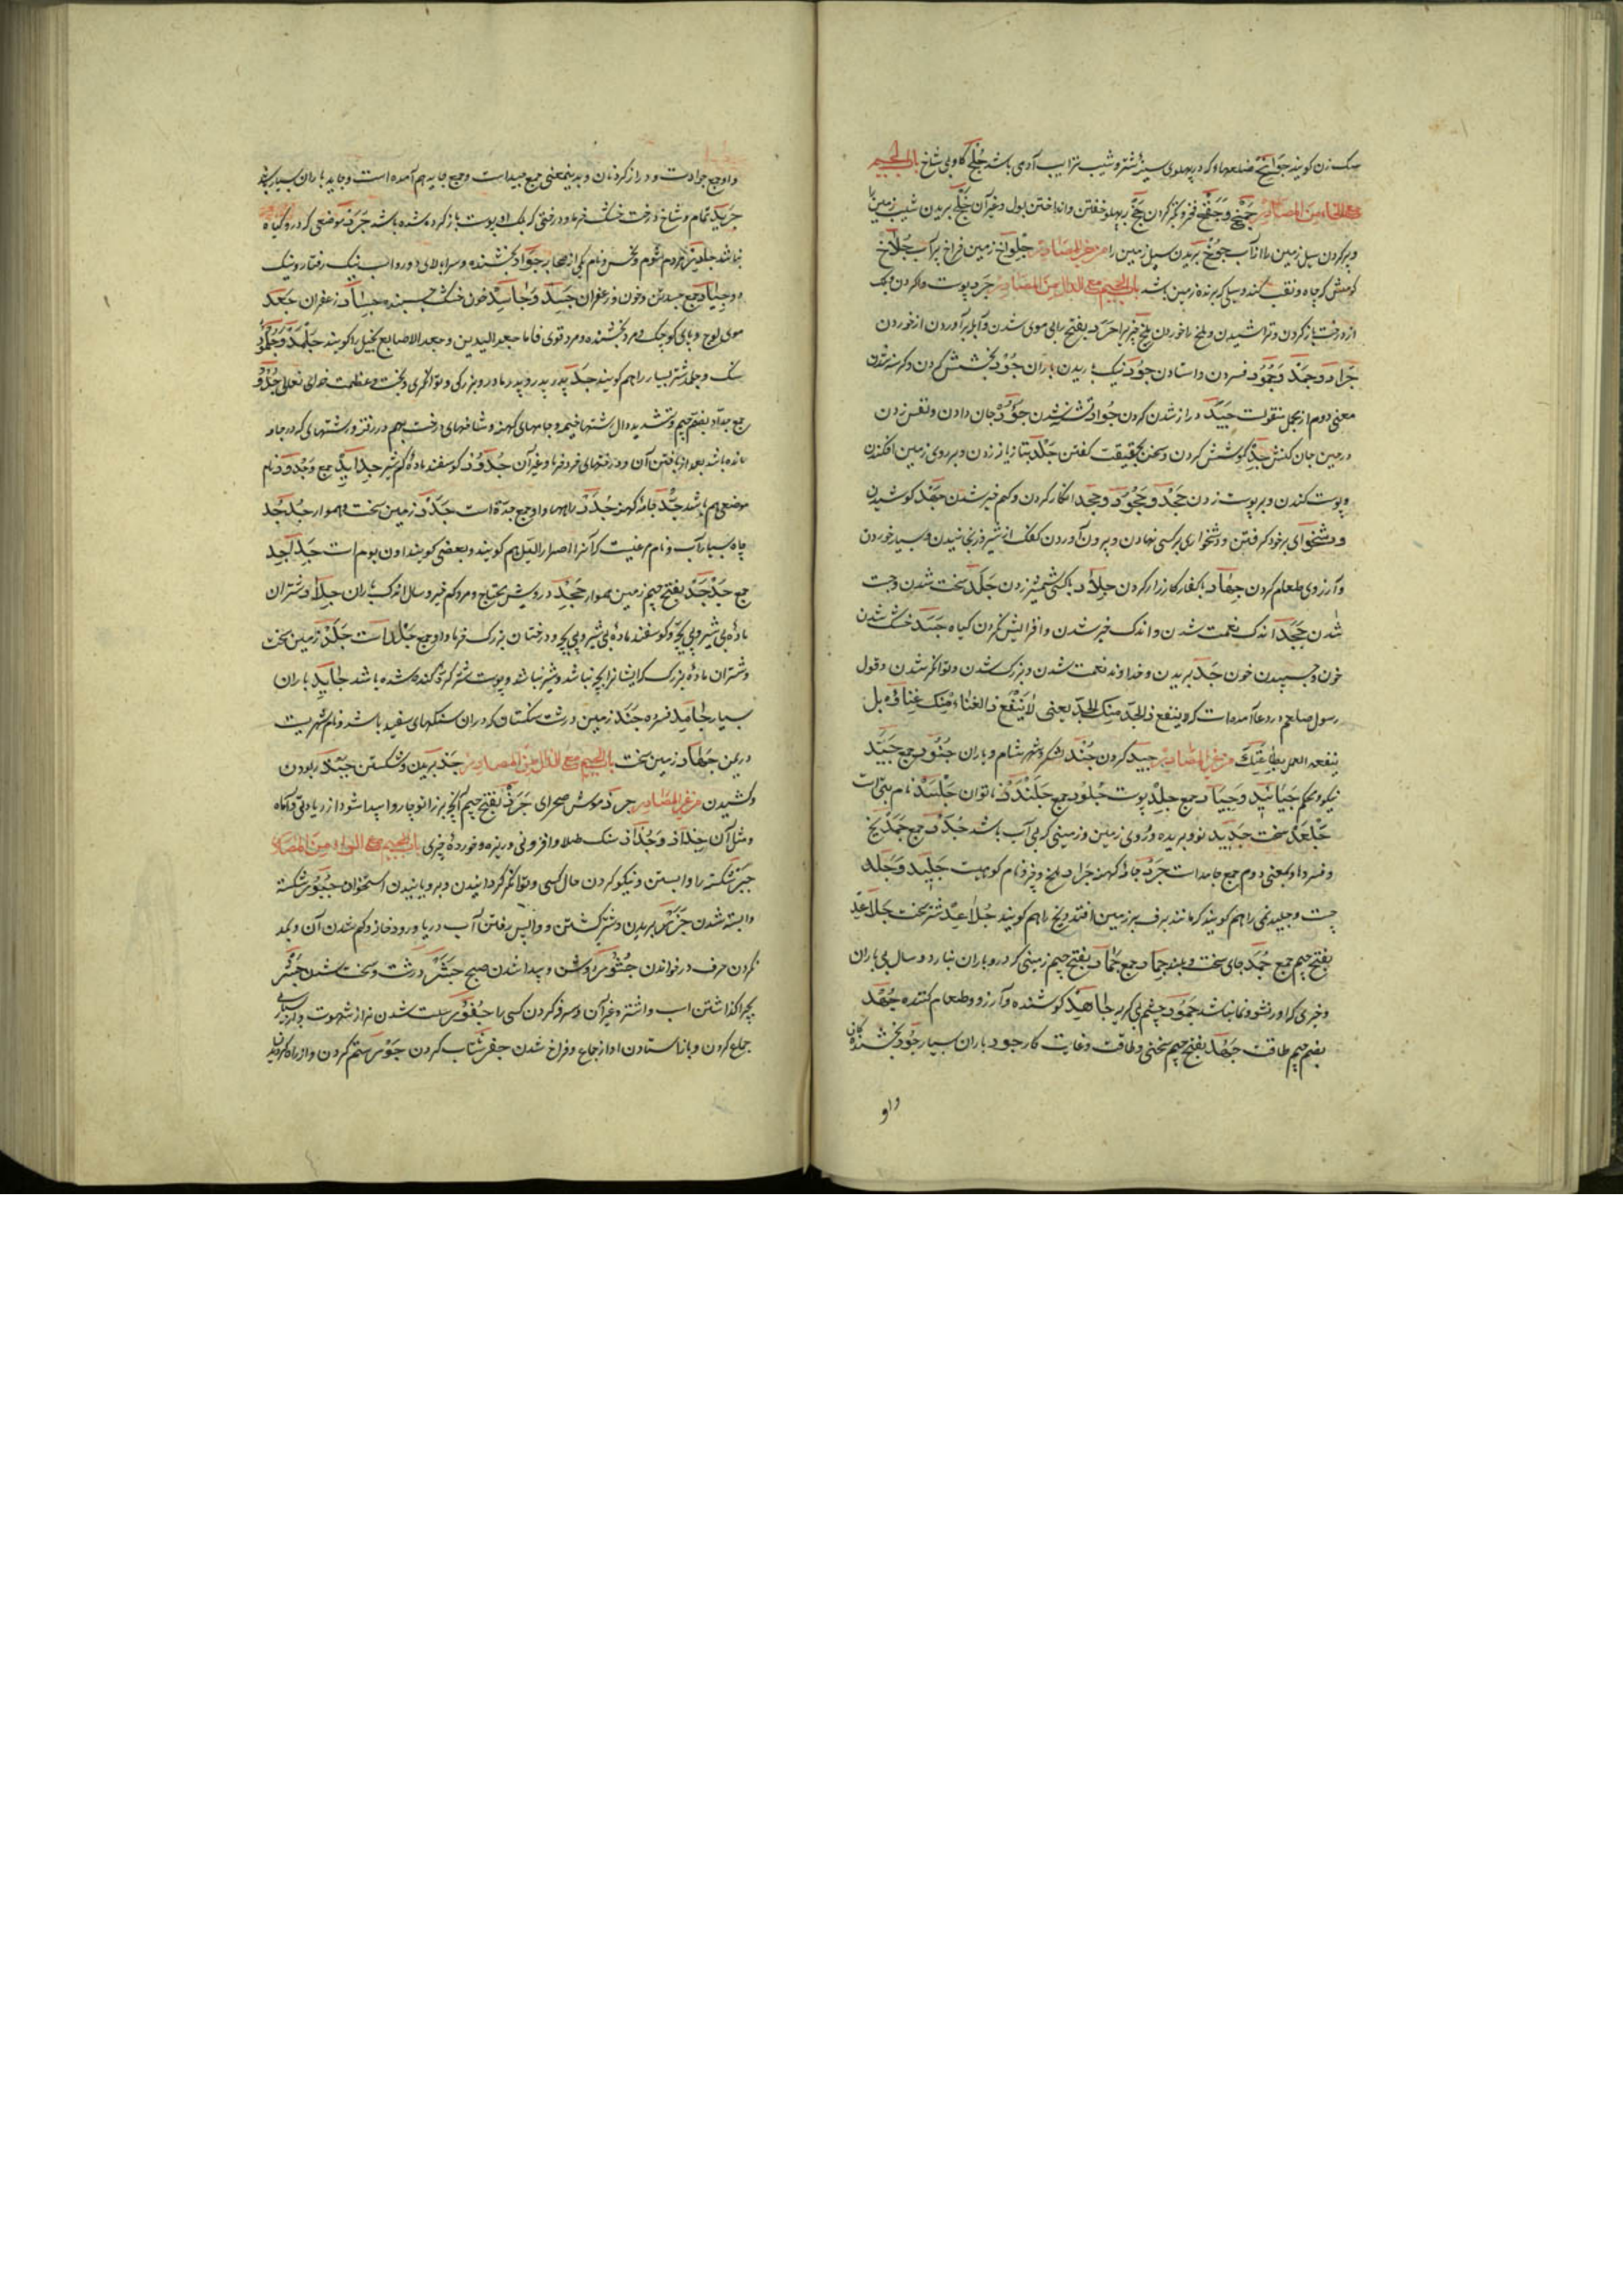 سک زن کویند جوانح ضلعها و که در پهلوی سینهٔ شتر و شیب ترایب آدمی باشد جُلَّح کاو بی شاخ باب الجیم
مع الخاء من المصادر جمخ و جفخ فخر و تکبر کردن جخ بپهلو خفتن و انداختن بول و غیر آن جلخ بریدن شیب زمین را
و پر کردن سیل زمین را از آب جوخ بریدن سیل زمین را من غیر المصادر جلواخ زمین فراخ پر آب جلاخ
کندو سیلی که برنده زمین باشد باب الجیم مع الدال من المصادر جرد پوست وا کردن
از درخت باز کردن و تراشیدن و ملخ ناخوردن بفتح را بی موی شدن و آبله برآوردن از خوردن
جراد و جمد و جمود فسردن و استادن جود نیک باریدن باران جود بخشش کردن و کرسنه شدن
معنی دوم از مجمل منقولست جید دراز شدن کردن جواد تشنه شدن جؤد جان دادن و نفس زدن
در حین جان کنش جد کوشش کردن و سخن بحقیقت کفتن جلد بتازیانه زدن و بر روی زمین افکندن
و پوست کندن و بر پوست زدن جحد و جحود و جحد انکار کردن و کم خیر شدن جهد کوشیدن
و دشخواری بر خود کرفتن و دشخواری بر کسی نهادن و بیرون آوردن کفک از شیر و رنجانیدن و بسیار خوردن
و آرزوی طعام کردن جهاد با کفار کارزار کردن جلاد با کسی شمشیر زدن جلد سخت شدن و چست
شدن جحد اندک نعمت شدن و اندک خیر شدن و افزایش نکردن کیاه جسد خشک شدن
خون و چسپیدن خون جد بریدن و خداوند نعمت شدن و بزرک شدن و توانکر شدن و قول
رسول صلعم در دعا آمده است که و لا ینفع ذا الجد منک الجد یعنی لا ینفع ذا الغناء منک غناؤه بل
ینفعه العمل بطاعتک من غیر المصادر جید کردن جند لشکر و شهر شام و یاران جنود جمع جید
نیکو و محکم جیائد و جیاد جمع جلد پوست جلود جمع جلندد ناتوان جلسد نام بتی است
جلعد سخت جدید نو و بریده و روی زمین و زمینی که بی آب باشد جدد جمع جمد یخ
و فسرده او بمعنی دوم جمع جامد است جرد جامهٔ کهنه جراد ملخ و فرد نام کوهیست جلید و جلد
چست و جلید نمی را هم کویند که مانند برف بر زمین افتد و یخ را هم کویند جلاعد شتر سخت جلاعد
بفتح جیم جمع جمد جای سخت و بلند جماد جمع جماد بفتح جیم زمینی که درو باران نبارد و سال بی باران
و چیزی که او را نشو و نما نباشد جمود چشم بی کریه جاهد کوشنده و آرزوی طعام کننده جهد
بضم جیم طاقت جهد بفتح جیم سختی و طاقت و غایت کار جود باران بسیار جود بخشندکان
واو
و او جمع جوادست و دراز کردنان و بدین معنی جمع جیداست و جمع جاید هم آمده است و جاید باران بسیار باشد
جرید تمام و شاخ درخت خشک خرما و درختی که برک او و پوست باز کرده شده باشد جرد موضعی که درو کیاه
نباشد مردم شوم و نحس و نام یکی از صحابه جواد بخشنده و سراء بالای دور و اسب نیک رفتار و نیک
و جیاد جمع و خون و زعفران جسد و جاسد خون خشک چسپنده جساد زعفران جعد
موی لوچ و پای کوچک و مرد بخشنده و مرد قوی فاما جعد الیدین و جعد الاصابع بخیل را کویند جلمد و جلمود
سنک و جلد شتر بسیار را هم کویند جد پدر پدر و پدر مادر و بزرکی و توانکری و بخت و عظمت خدای تعالی جدود
جمع جداد بضم جیم و تشدید دال رشتهای خیمه و جامهای کهنه و شاخهای درخت بهم در رفته و رشتهای که در جامه
مانده باشد بعد از بافتن آن و درختهای خرد خرما و غیر آن جدود کوسفند مادهٔ کم شیر جداید جمع و جدود نام
موضعی هم باشد جد جامهٔ کهنه جدد راهها و او جمع جدة است جدد زمین سخت و هموار جدجد
چاه بسیار آب و نام مرغیست که آنرا صرار اللیل هم کویند و بعضی کویند اون بوم است جداجد
جمع جدجد بفتح جیم زمین هموار جحد درویش محتاج و مرد کم خیر و سال اندک باران جلاد شتران
مادهٔ بی شیر و بی بچه و کوسفند مادهٔ بی شیر و بی بچه و درختان بزرک خرما و او جمع جلداست جلد زمین سخت
و شتران مادهٔ بزرک که ایشانرا بچه نباشد و شیر نباشد و پوست شتر کرهٔ کنده شده باشد جاید باران
بسیار جامد فسرده جند زمین درشت سنکستان که دران سنکهای سفید باشد و نام شهریست
در یمن جهاد زمین سخت باب الجیم مع الذال من المصادر جذ بریدن و شکستن جبذ ربودن
و کشیدن من غیر المصادر جرذ موش صحرای جرذ بفتح جیم آنچه بر زانو چاروا پیدا شود از زیادتی و آماه
و مثل آن جذاذ و جذاذ سنک طلا و افزونی و ریزه و خوردهٔ چیزی باب الجیم مع الراء من المصادر
جبر شکسته را وا بستن و نیکو کردن حال کسی و توانکر کردانیدن و برویانیدن استخوان جبور شکسته
وا بسته شدن جزر بریدن و شتر کشتن و واپس رفتن آب دریا و رودخانه و کم شدن آن و بمد
نکردن حرف در خواندن جشور روشن و پیدا شدن صبح جشر درشت و سخت شدن جشر
بچرا کذاشتن اسب و اشتر و غیر آن و سرفه کردن کسی را جفور سست شدن نر از شهوت و از بسیاری
جماع کردن و باز استادن او از جماع و فراخ شدن جفر شتاب کردن جور ستم کردن و از راه کردیدن